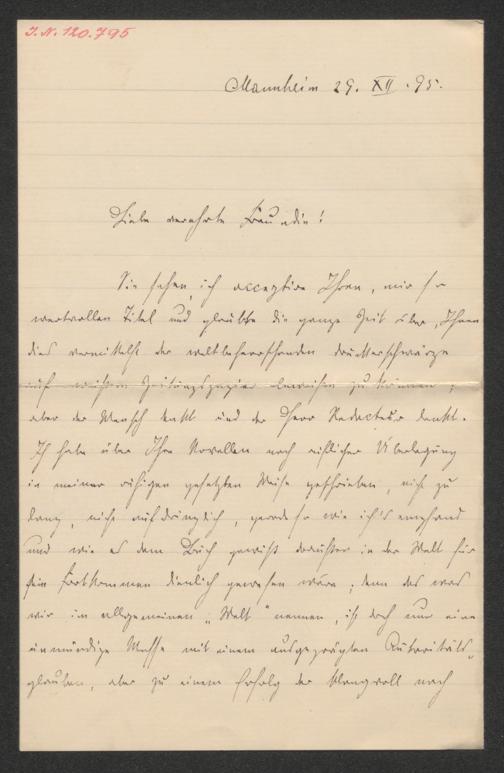 J.N. 120.795
Mannheim 29. XII. 95.
Liebe verehrte Freundin!
Sie sehen, ich acceptire Ihren, mir so
wertvollen Titel und glaubte die ganze Zeit über, Ihnen
dies vermittelst der weltbeherrschenden Druckerschwärze
auf weißem Zeitungspapier beweisen zu können;
aber der Mensch denkt und der Herr Redacteur lenkt.
Ich habe über Ihre Novellen nach reiflicher Überlegung
in meiner ruhigen gesetzten Weise geschrieben, nicht zu
lang, nicht aufdringlich, gerade so wie ich's empfand
und wie es dem Buch gewiß draußen in der Welt für
sein Fortkommen dienlich gewesen wäre; denn das was
wir im allgemeinen „Welt" nennen, ist doch nur eine
unmündige Masse mit einem ausgeprägten Autoritäts-
glauben, aber zu einem Erfolg der klangvoll nach